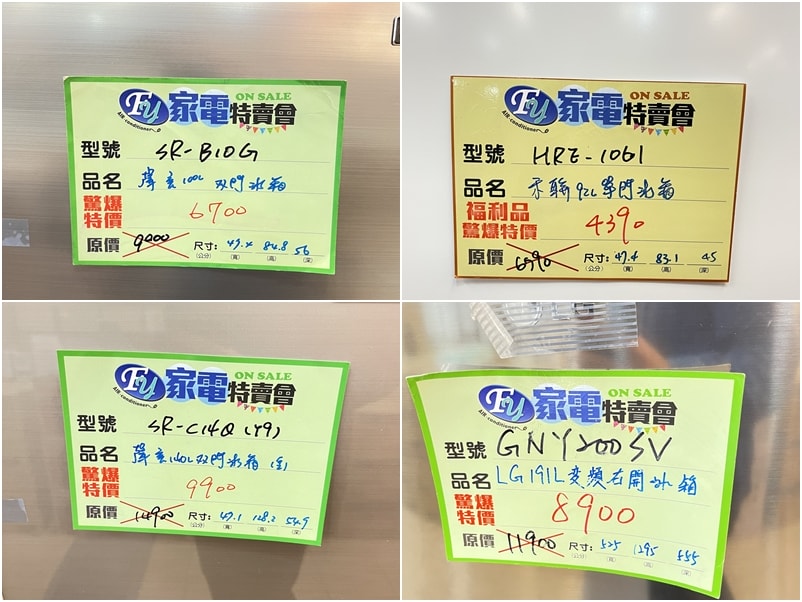 FY 家電特賣會 ON SALE
AIR conditioner
型號 SR-B10G
品名 聲寶100L双門冰箱
驚爆特價 6700
原價 9000 尺寸: 47.4 84.8 56
(公分) (寬) (高) (深)
FY 家電特賣會 ON SALE
AIR conditioner
型號 HRE-1061
品名 禾聯92L單門冰箱
福利品
驚爆特價 4390
原價 6590 尺寸: 47.4 83.1 45
(公分) (寬) (高) (深)
FY 家電特賣會 ON SALE
AIR conditioner
型號 SR-C14Q (Y9)
品名 聲寶140L双門冰箱
驚爆特價 9900
原價 14900 尺寸: 47.1 128.2 54.9
(公分) (寬) (高) (深)
FY 家電特賣會 ON SALE
AIR conditioner
型號 GNY200SV
品名 LG191L変頻右開冰箱
驚爆特價 8900
原價 11900 尺寸: 525 1295 555
(公分) (寬) (高) (深)